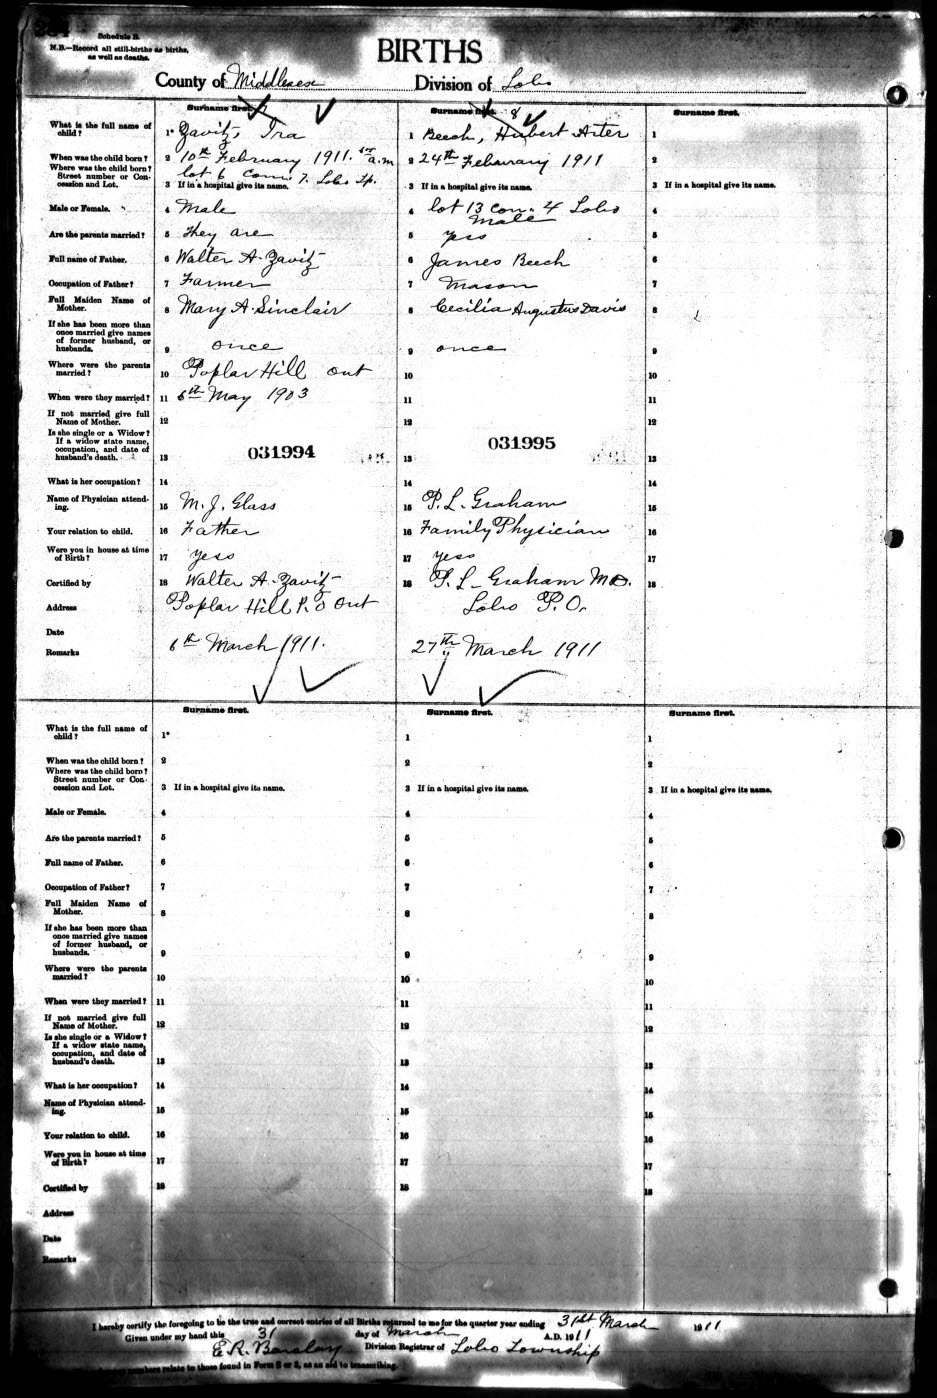 Schedule B.
N.B.—Record all still-births as births,
as well as deaths.
BIRTHS
County of Middlesex Division of Lobo
Surname first. 7
Surname first. 8
Surname first.
What is the full name of child? 1* Zavitz, Ira
1 Beech, Hubert Arter
1
When was the child born? 2 10th February 1911. a.m
2 24th Feburary 1911
2
Where was the child born? Street number or Concession and Lot. lot 6 Con. 7. Lobo Tp.
3 If in a hospital give its name.
3 If in a hospital give its name.
3 If in a hospital give its name.
lot 13 Con. 4 Lobo
Male or Female. 4 Male
4 Male
4
Are the parents married? 5 They are
5 yes
5
Full name of Father. 6 Walter A. Zavitz
6 James Beech
6
Occupation of Father? 7 Farmer
7 Mason
7
Full Maiden Name of Mother. 8 Mary A. Sinclair
8 Cecilia Augustus Davis
8
If she has been more than once married give names of former husband, or husbands. 9 once
9 once
9
Where were the parents married? 10 Poplar Hill Ont
10
10
When were they married? 11 6th May 1903
11
11
If not married give full Name of Mother. 12
12
12
Is she single or a Widow? If a widow state name, occupation, and date of husband's death. 13
031994
13
031995
13
What is her occupation? 14
14
14
Name of Physician attending. 15 M. J. Glass
15 P. L. Graham
15
Your relation to child. 16 Father
16 Family Physician
16
Were you in house at time of Birth? 17 Yess
17 yess
17
Certified by 18 Walter A. Zavitz
18 P. L. Graham M.D.
18
Address Poplar Hill P.O Ont
Lobo P.O.
Date
Remarks 6th March 1911.
27th March 1911
Surname first.
Surname first.
Surname first.
What is the full name of child? 1*
1
1
When was the child born? 2
2
2
Where was the child born? Street number or Concession and Lot. 3 If in a hospital give its name.
3 If in a hospital give its name.
3 If in a hospital give its name.
Male or Female. 4
4
4
Are the parents married? 5
5
5
Full name of Father. 6
6
6
Occupation of Father? 7
7
7
Full Maiden Name of Mother. 8
8
8
If she has been more than once married give names of former husband, or husbands. 9
9
9
Where were the parents married? 10
10
10
When were they married? 11
11
11
If not married give full Name of Mother. 12
12
12
Is she single or a Widow? If a widow state name, occupation, and date of husband's death. 13
13
13
What is her occupation? 14
14
14
Name of Physician attending. 15
15
15
Your relation to child. 16
16
16
Were you in house at time of Birth? 17
17
17
Certified by 18
18
18
Address
Date
Remarks
I hereby certify the foregoing to be the true and correct entries of all Births returned to me for the quarter year ending 31st March 1911
Given under my hand this 31 day of March A.D. 1911
E. R. Barclay Division Registrar of Lobo Township
numbers relate to those found in Form 2 or 3, as an aid to transcribing.